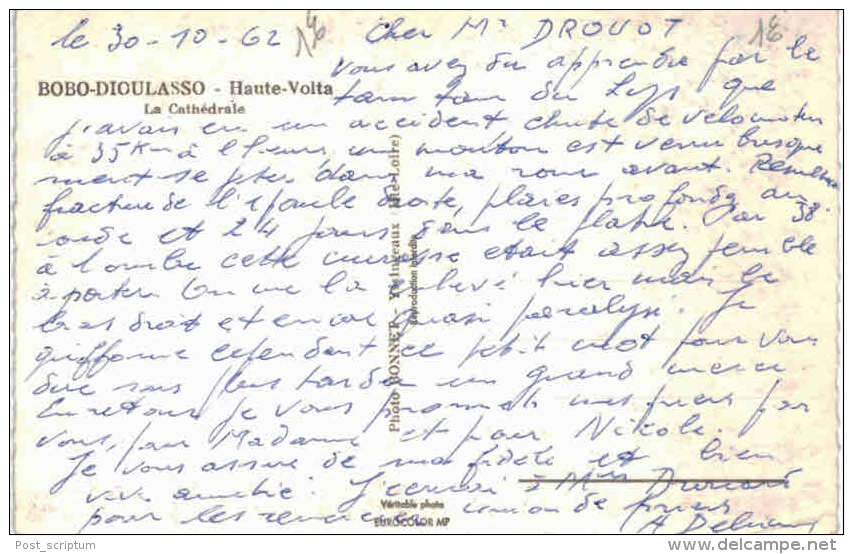 le 30-10-62 1€ Cher Mr DROUOT 1€
vous avez du apprendre par le
BOBO-DIOULASSO - Haute-Volta
tam tam du que
La Cathédrale
j'avais eu un accident chute de velomoteur
à 35 Km à l'heure un mouton est venu brusque
ment se jeter dans ma roue avant. Résultat
fracture de l'epaule droite, plaies profondes au
coude et 24 jours dans le platre. Par 38°
à l'ombre cette cuirasse etait assez penible
à porter On me l'a enlevé hier mais le
bras droit est encore quasi paralysé. Je
griffonne cependant ce petit mot pour vous
dire sans plus tarder un grand merci.
En retour je vous promets mes prieres par
vous, pour Madame et pour Nicole.
Je vous assure de ma fidèle et bien
vive amitié. J'ecrirai à Mme
pour les remercier union de prières
Photo BONNET Yssingeaux (Hte-Loire)
Reproduction interdite
Véritable photo
EUROCOLOR MP
Post_scriptum
delcampe.net